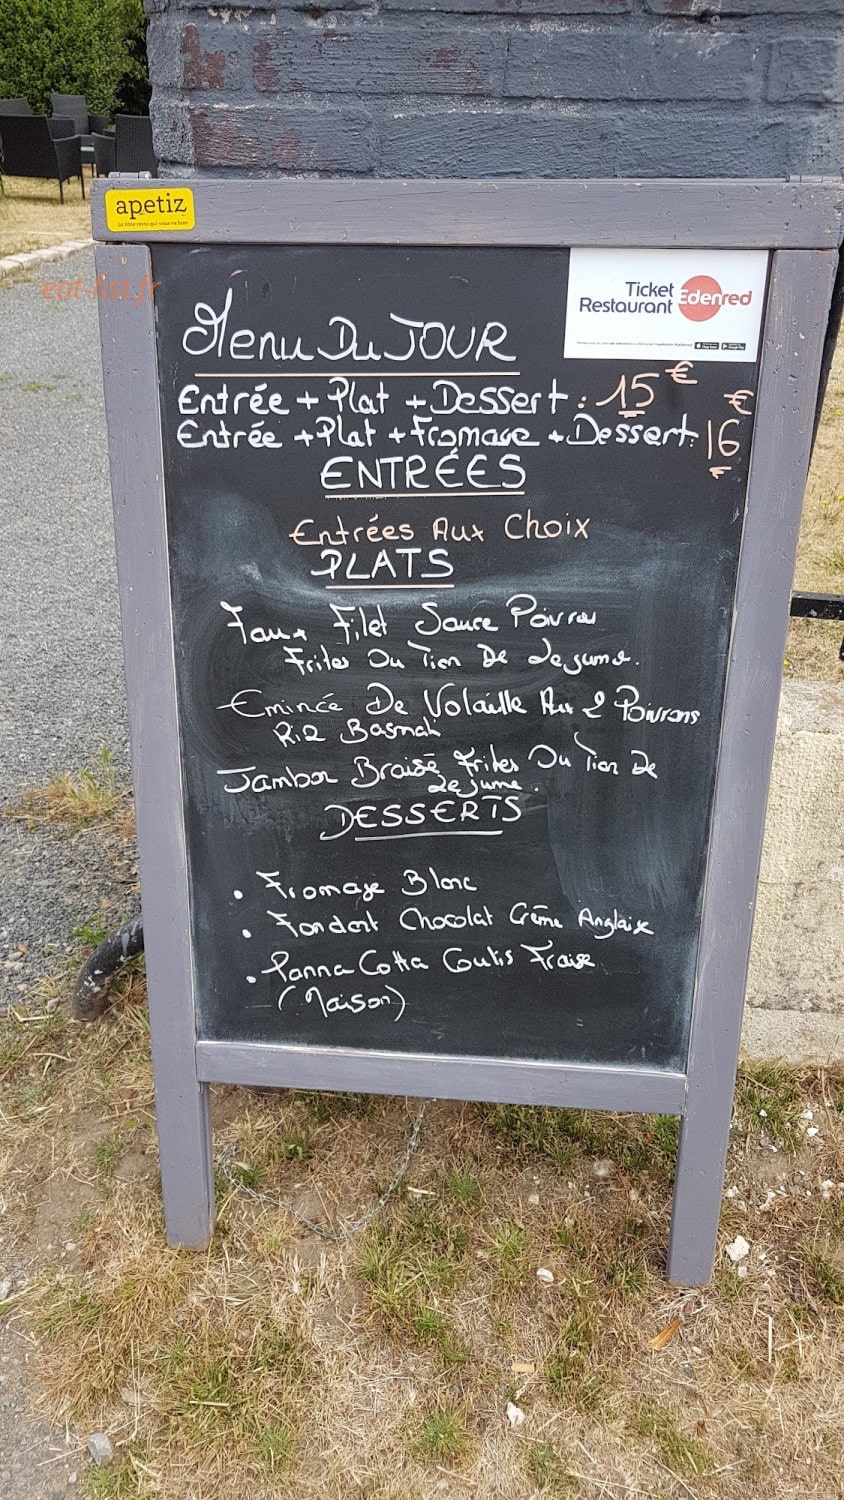 apetiz
Le titre-resto qui vous va bien
eat-list.fr
Ticket
Restaurant
Edenred
Menu Du JOUR
Entrée + Plat + Dessert : 15 €
Entrée + Plat + Fromage + Dessert : 16 €
ENTRÉES
Entrées Aux Choix
PLATS
Faux Filet Sauce Poivres
Frites Ou Tian De Legume.
Emincé De Volaille Aux 2 Poivrons
Riz Basmati
Jambon Braisé Frites Ou Tian De
Legume.
DESSERTS
. Fromage Blanc
. Fondant Chocolat Crème Anglaise
. Panna Cotta Coulis Fraise
(Maison)